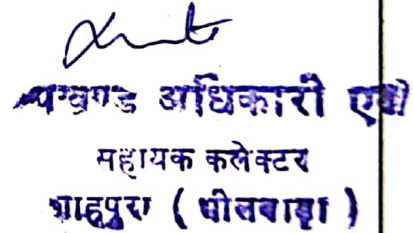 उपखण्ड अधिकारी एवं
सहायक कलेक्टर
शाहपुरा ( भीलवाड़ा )